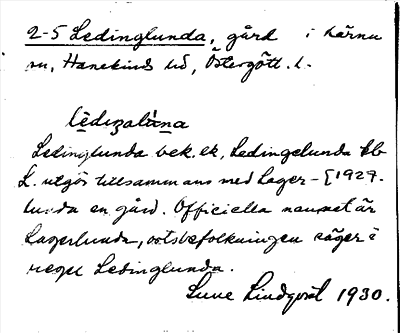 2-5 Ledinglunda, gård i Kärna
sn, Hanekinds hd, Östergötl. l.
Ledinglunda bek. ek, Ledingelunda Ebl
L. utgör tillsammans med Lager- [1929.
lunda en gård. Officiella namnet är
Lagerlunda, ortsbefolkningen säger i
regel Ledinglunda.
Sune Lindqvist 1930.